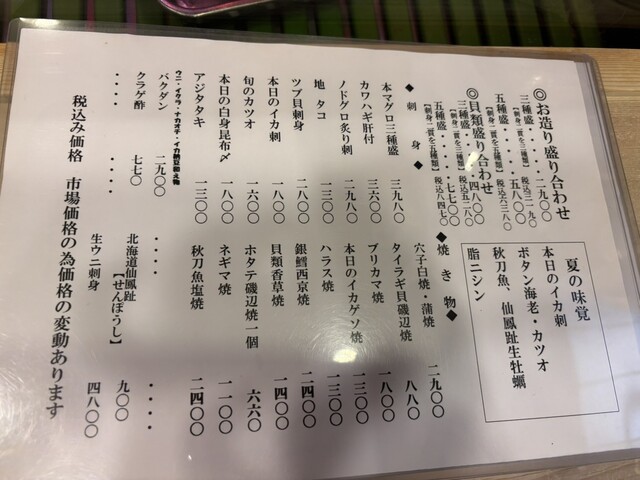 ◎お造り盛り合わせ
三種盛・・・・・二九〇〇
【刺身二貫を三種類】税込三一九〇
五種盛・・・・・五八〇〇
【刺身二貫を五種類】税込六三八〇
◎貝類盛り合わせ
三種盛・・・・・四八〇〇
【刺身二貫を三種類】税込五二八〇
五種盛・・・・・七七〇〇
【刺身二貫を五種類】税込八四七〇
夏の味覚
本日のイカ刺
ボタン海老・カツオ
秋刀魚、仙鳳趾生牡蠣
脂ニシン
◆刺身◆
本マグロ三種盛 三九八〇
カワハギ肝付 三六〇〇
ノドグロ炙り刺 二九八〇
地タコ 一三〇〇
ツブ貝刺身 二八〇〇
本日のイカ刺 一八〇〇
旬のカツオ 一六〇〇
本日の白身昆布〆 一八〇〇
アジタタキ 一三〇〇
ウニ・イクラ・ナカオチ・イカ納豆和え物
バクダン 二九〇〇
クラゲ酢 七七〇
・・・・ ・・・・
◆焼き物◆
穴子白焼・蒲焼 二九〇〇
タイラギ貝磯辺焼 八八〇
ブリカマ焼 一八〇〇
本日のイカゲソ焼 一三〇〇
ハラス焼 一三〇〇
銀鱈西京焼 二四〇〇
貝類香草焼 一四〇〇
ホタテ磯辺焼一個 六六〇
ネギマ焼 一一〇〇
秋刀魚塩焼 二四〇〇
・・・・ ・・・・
北海道仙鳳趾
【せんぽうし】 九〇〇
生ウニ刺身 四八〇〇
税込み価格 市場価格の為価格の変動あります